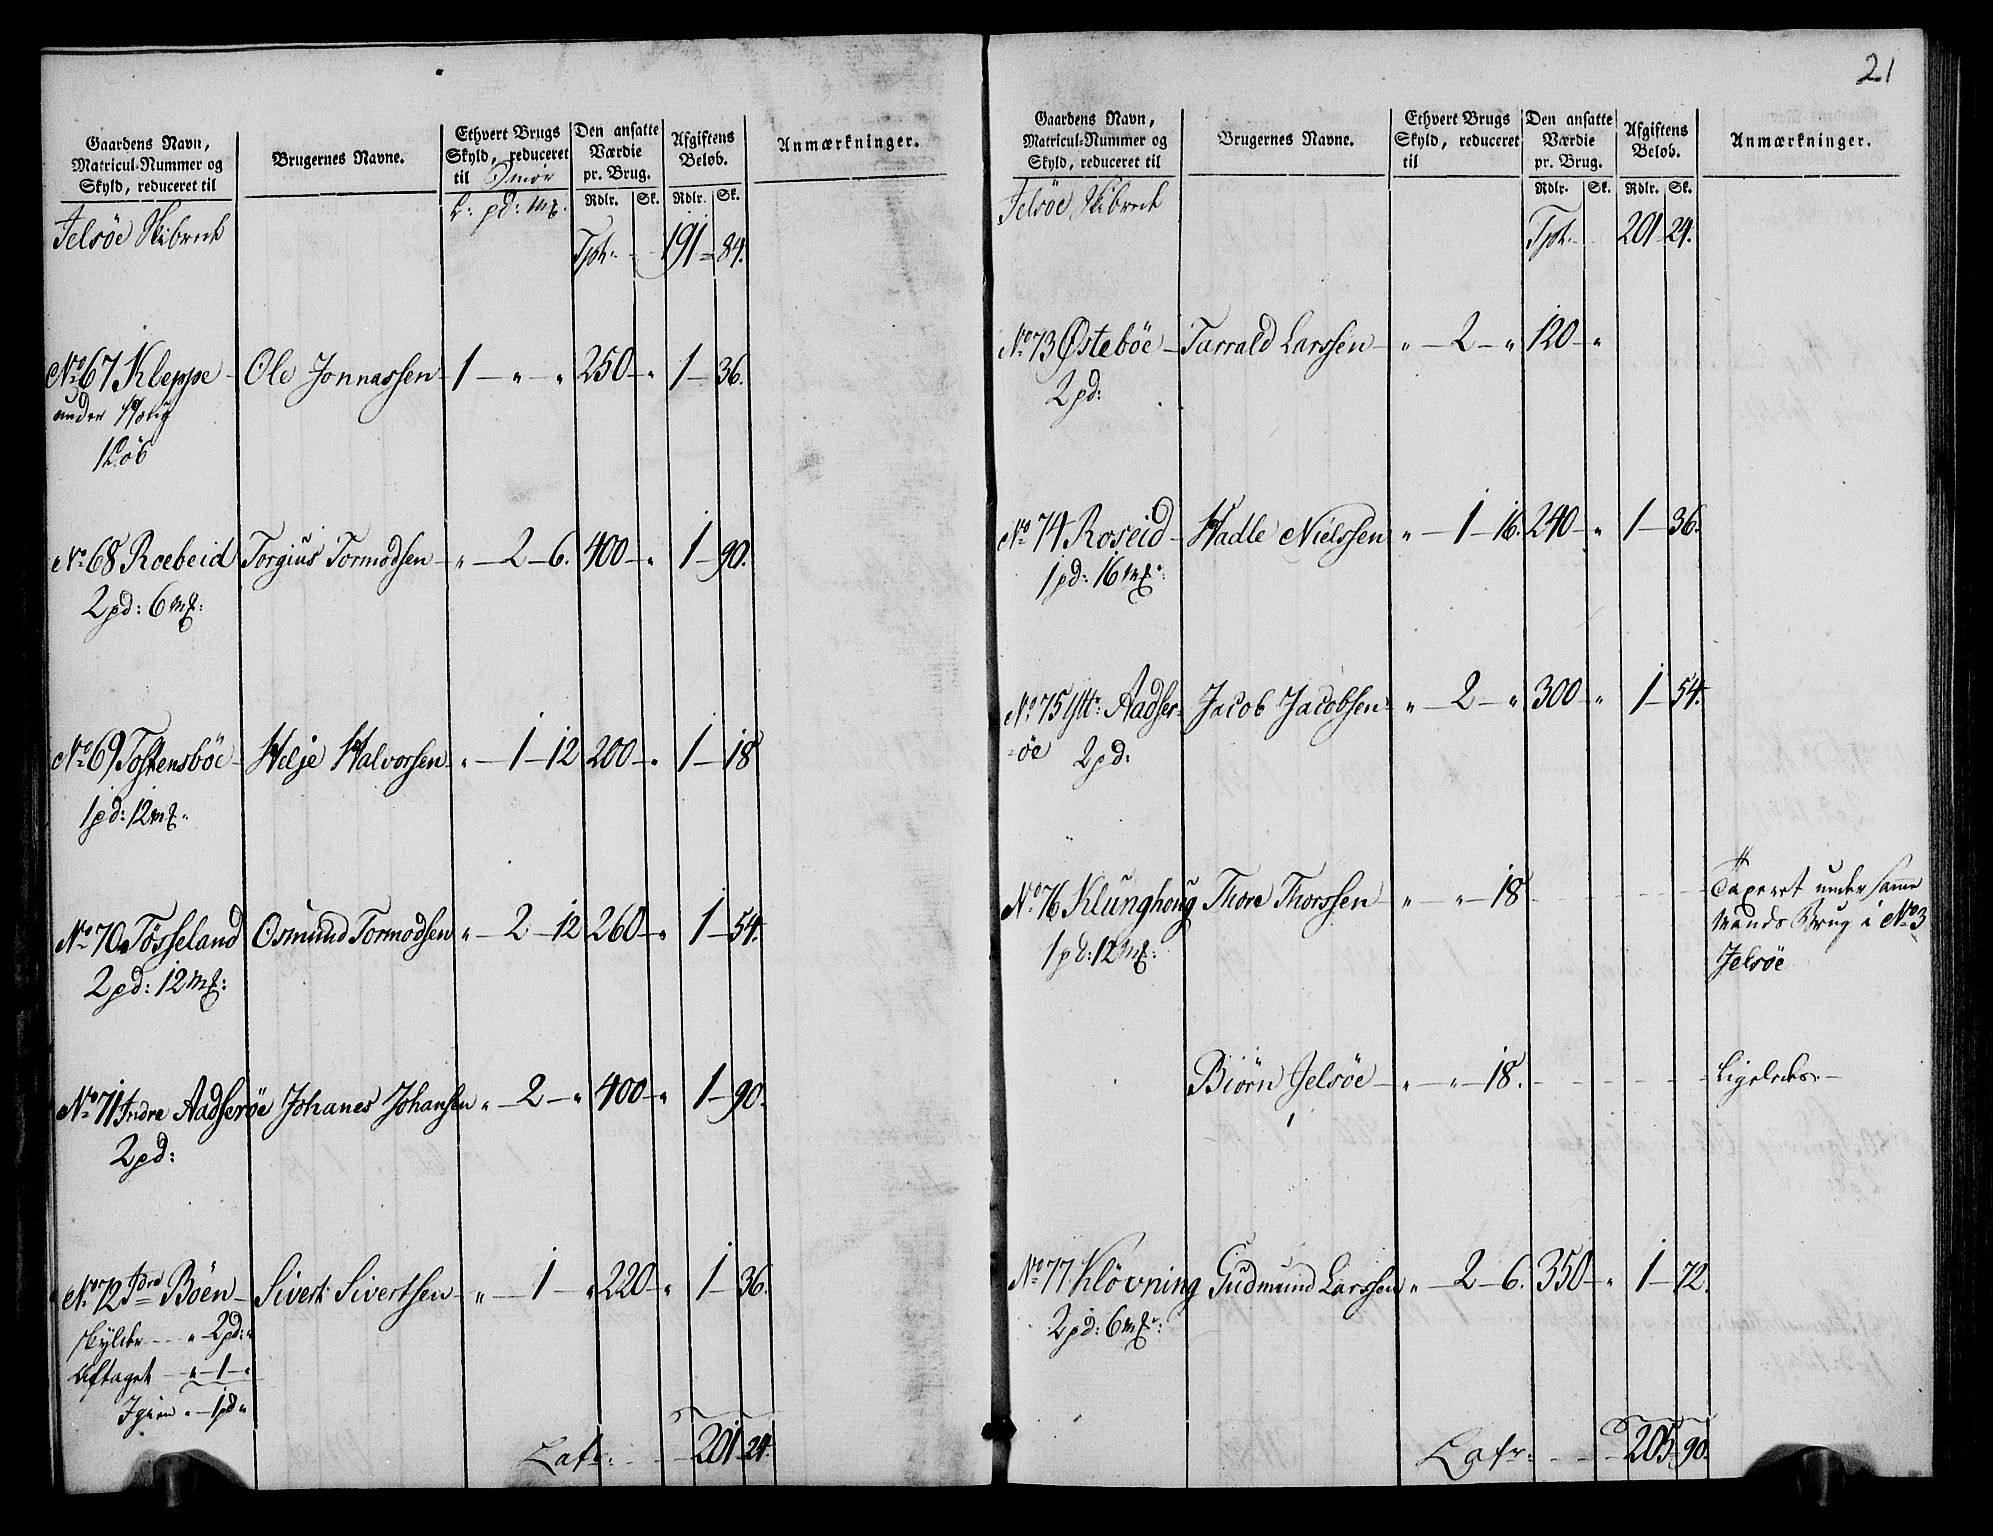 Gaardens Navn, Matricul-Nummer og Skyld, reduceret til
Brugernes Navne.
Ethvert Brugs Skyld, reduceret til Smör
Den ansatte Værdie pr. Brug.
Afgiftens Beløb.
Anmærkninger.
L: pd: m&.
Rdlr. Sk. Rdlr. Sk.
Jelsöe Skibrede
Tpt: 191 - 84.
No 67 Kleppe Ole Jonnassen 1 - " - " 250 - " 1 - 36.
under
1 Löb
No 68 Roebeid Torgius Tormodsen " - 2 - 6. 400 - " 1 - 90.
2 pd: 6 m&:
No 69 Tostensböe Helje Halvorsen " - 1 - 12 200 - " 1 - 18
1 pd: 12 m&.
No 70 Tösseland Osmund Tormodsen " - 2 - 12 260 - " 1 - 54.
2 pd: 12 m&:
No 71 Indre Aadseröe Johanes Johansen " - 2 - " 400 - " 1 - 90.
2 pd:
No 72 Idre Böen Sivert Sivertsen " - 1 - " 220 - " 1 - 36.
skylder " 2 pd: "
Aftaget " - 1 - "
Igien " - 1 pd "
Latr: 201 24.
21
Gaardens Navn, Matricul-Nummer og Skyld, reduceret til
Brugernes Navne.
Ethvert Brugs Skyld, reduceret til
Den ansatte Værdie pr. Brug.
Afgiftens Beløb.
Anmærkninger.
Rdlr. Sk. Rdlr. Sk.
Jelsöe Skibrede
Tpt. 201 24.
No 73 Østeböe Tarrald Larssen " - 2 - " 120 - "
2 pd:
No 74 Roseid Hadle Nielssen " - 1 - 16. 240 - " 1 - 36.
1 pd: 16 m&:
No 75 Ytt: Aadser- Jacob Jacobsen " - 2 - " 300 - " 1 - 54.
-öe 2 pd:
No 76 Klunghoug Thore Thorssen " " - 18
Taxeret under samme
Mands Brug i No 3
Jelsöe
1 pd: 12 m&:
Biörn Jelsöe " " - 18. Ligeledes
No 77 Klövning Gudmund Larssen " - 2 - 6. 350 - " 1 - 72.
2 pd: 6 m&:
Latr: 205 - 90.